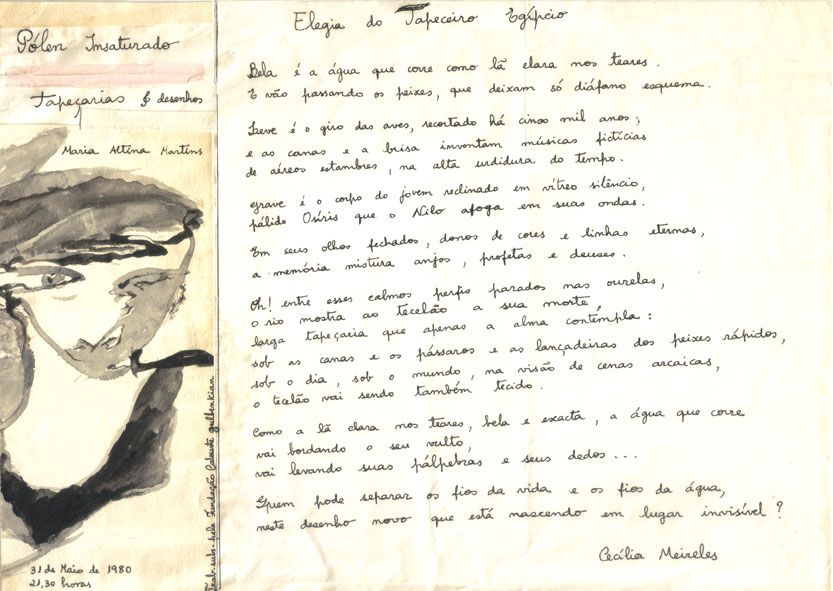 Pólen Insaturado
Tapeçarias & desenhos
Maria Altina Martins
31 de Maio de 1980
21,30 horas
Trab. subs. pela Fundação Calouste Gulbenkian
Elegia do Tapeceiro Egípcio
Bela é a água que corre como lã clara nos teares.
E vão passando os peixes, que deixam só diáfano esquema.
Leve é o giro das aves, recortado há cinco mil anos;
e as canas e a brisa inventam músicas fictícias
de aéreos estambres, na alta urdidura do tempo.
grave é o corpo do jovem reclinado em vítreo silêncio,
pálido Osíris que o Nilo afoga em suas ondas.
Em seus olhos fechados, donos de cores e linhas eternas,
a memória mistura anjos, profetas e deuses.
Oh! entre esses calmos perfis parados nas ourelas,
o rio mostra ao tecelão a sua morte,
larga tapeçaria que apenas a alma contempla:
sob as canas e os pássaros e as lançadeiras dos peixes rápidos,
sob o dia, sob o mundo, na visão de cenas arcaicas,
o tecelão vai sendo também tecido.
Como a lã clara nos teares, bela e exacta, a água que corre
vai bordando o seu vulto,
vai levando suas pálpebras e seus dedos...
Quem pode separar os fios da vida e os fios da água,
neste desenho novo que está nascendo em lugar invisível?
Cecília Meireles